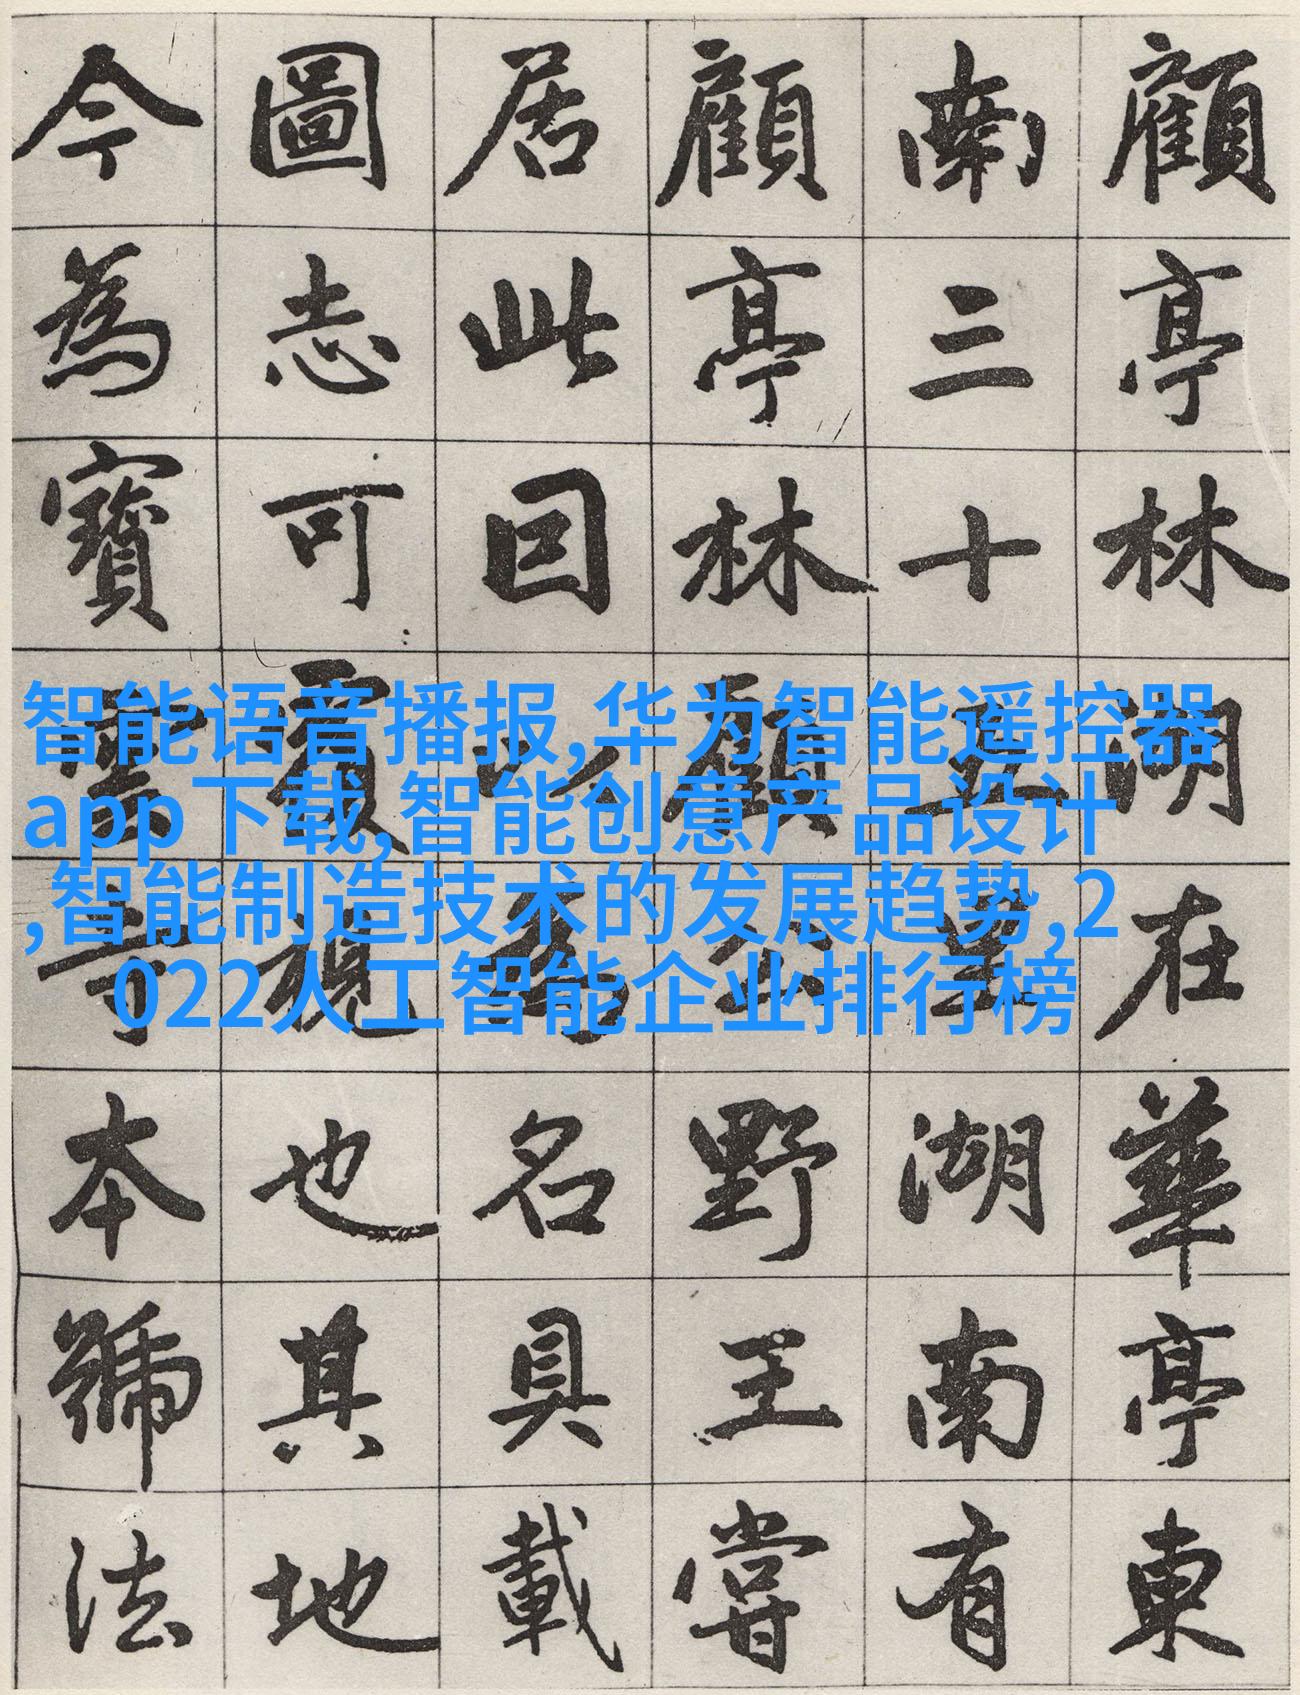 顧亭林湖在華亭東
南三十五里湖南有
顧亭林顧公野王嘗
居此因以為名具載
圖志可覆視也其地
今為寶雲寺本號法
智能语音播报,华为智能遥控器
app下载,智能创意产品设计
,智能制造技术的发展趋势,2
022人工智能企业排行榜